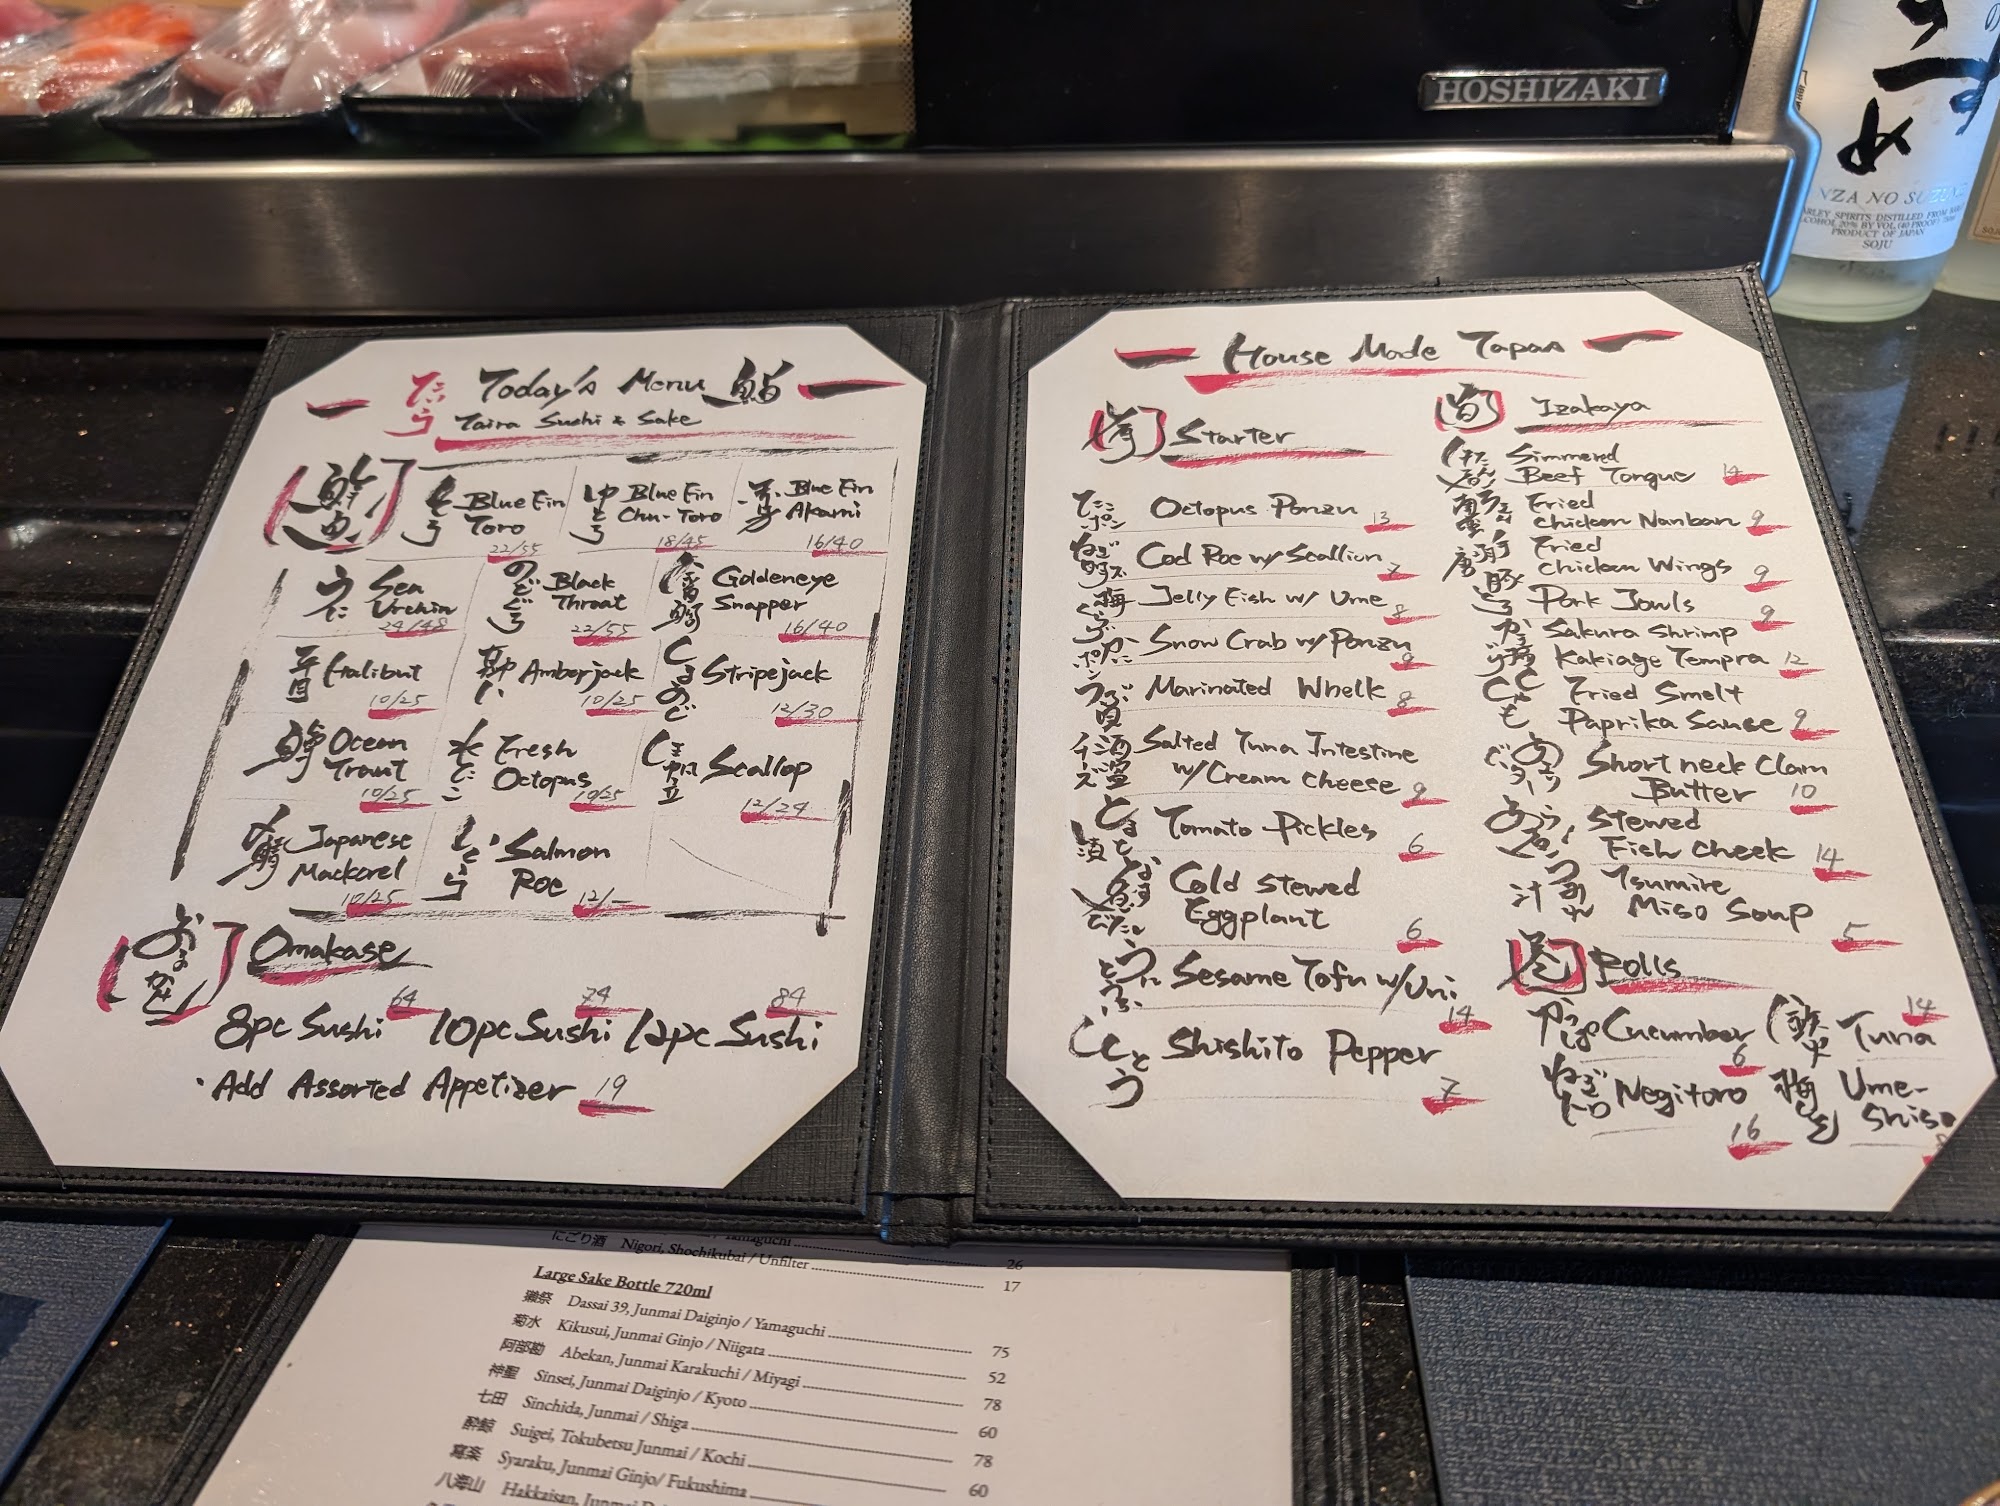 HOSHIZAKI
の
すずめ
NZA NO SUZUME
BARLEY SPIRITS DISTILLED FROM BAR
ALCOHOL 20% BY VOL.(40 PROOF) 750ml
PRODUCT OF JAPAN
SOJU
たいら Today's Menu 鮨
Taira Sushi & Sake
鮮魚
とろ Blue Fin Toro 22/55
中とろ Blue Fin Chu-Toro 18/45
赤身 Blue Fin Akami 16/40
うに Sea Urchin 24/48
のどぐろ Black Throat 22/55
金目鯛 Goldeneye Snapper 16/40
平目 Halibut 10/25
勘八 Amberjack 10/25
しまあじ Stripejack 12/30
鱒 Ocean Trout 10/25
水だこ Fresh Octopus 10/25
帆立 Scallop 12/24
〆鯖 Japanese Mackerel 10/25
いくら Salmon Roe 12/-
おまかせ Omakase
8pc Sushi 64 10pc Sushi 74 12pc Sushi 84
・Add Assorted Appetizer 19
House Made Tapas
肴 Starter
たこポン Octopus Ponzu 13
Cod Roe w/ Scallion 7
梅くらげ Jelly Fish w/ Ume 8
かにポン Snow Crab w/ Ponzu 9
つぶ貝 Marinated Whelk 8
酒盗チーズ Salted Tuna Intestine
w/ Cream Cheese 9
とまと漬 Tomato Pickles 6
なす Cold Stewed
Eggplant 6
うにとうふ Sesame Tofu w/ Uni 14
ししとう Shishito Pepper 7
旬 Izakaya
牛たん Simmered
Beef Tongue 14
南蛮 Fried
Chicken Nanban 9
手羽唐 Fried
Chicken Wings 9
豚とろ Pork Jowls 9
かきあげ Sakura Shrimp
Kakiage Tempra 12
ししゃも Fried Smelt
Paprika Sause 9
あさりバター Short neck Clam
Butter 10
Stewed
Fish Cheek 14
つみれ汁 Tsumire
Miso Soup 5
巻 Rolls
かっぱ Cucumber 6
鉄火 Tuna 14
ねぎトロ Negitoro 16
梅しそ Ume-
Shiso
Yamaguchi 26
にごり酒 Nigori, Shochikubai / Unfilter 17
Large Sake Bottle 720ml
獺祭 Dassai 39, Junmai Daiginjo / Yamaguchi 75
菊水 Kikusui, Junmai Ginjo / Niigata 52
阿部勘 Abekan, Junmai Karakuchi / Miyagi 78
神聖 Sinsei, Junmai Daiginjo / Kyoto 60
七田 Sinchida, Junmai / Shiga 78
酔鯨 Suigei, Tokubetsu Junmai / Kochi 60
寫楽 Syaraku, Junmai Ginjo/ Fukushima
八海山 Hakkaisan, Junmai